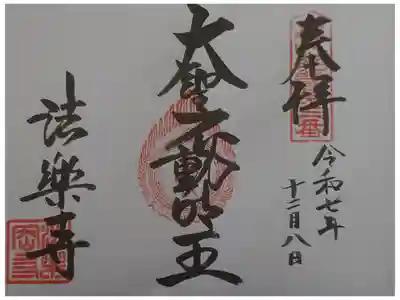 奉拝
令和七年
十二月八日
大聖不動明王
法樂寺